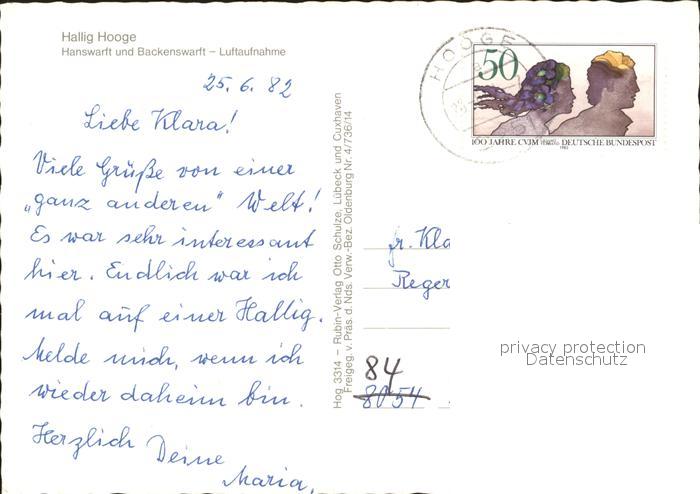 Hallig Hooge
Hanswarft und Backenswarft – Luftaufnahme
25. 6. 82
Liebe Klara!
Viele Grüße von einer
„ganz anderen" Welt!
Es war sehr interessant
hier. Endlich war ich
mal auf einer Hallig.
Melde mich, wenn ich
wieder daheim bin.
Herzlich Deine
Maria.
Hog 3314 – Rubin-Verlag Otto Schulze, Lübeck und Cuxhaven
Freigeg. v. Präs. d. Nds. Verw.-Bez. Oldenburg Nr. 4/736/14
HOOGE
50
100 JAHRE CVJM DEUTSCHE BUNDESPOST
1982
Fr. Kla
Reger
84
8054
privacy protection
Datenschutz